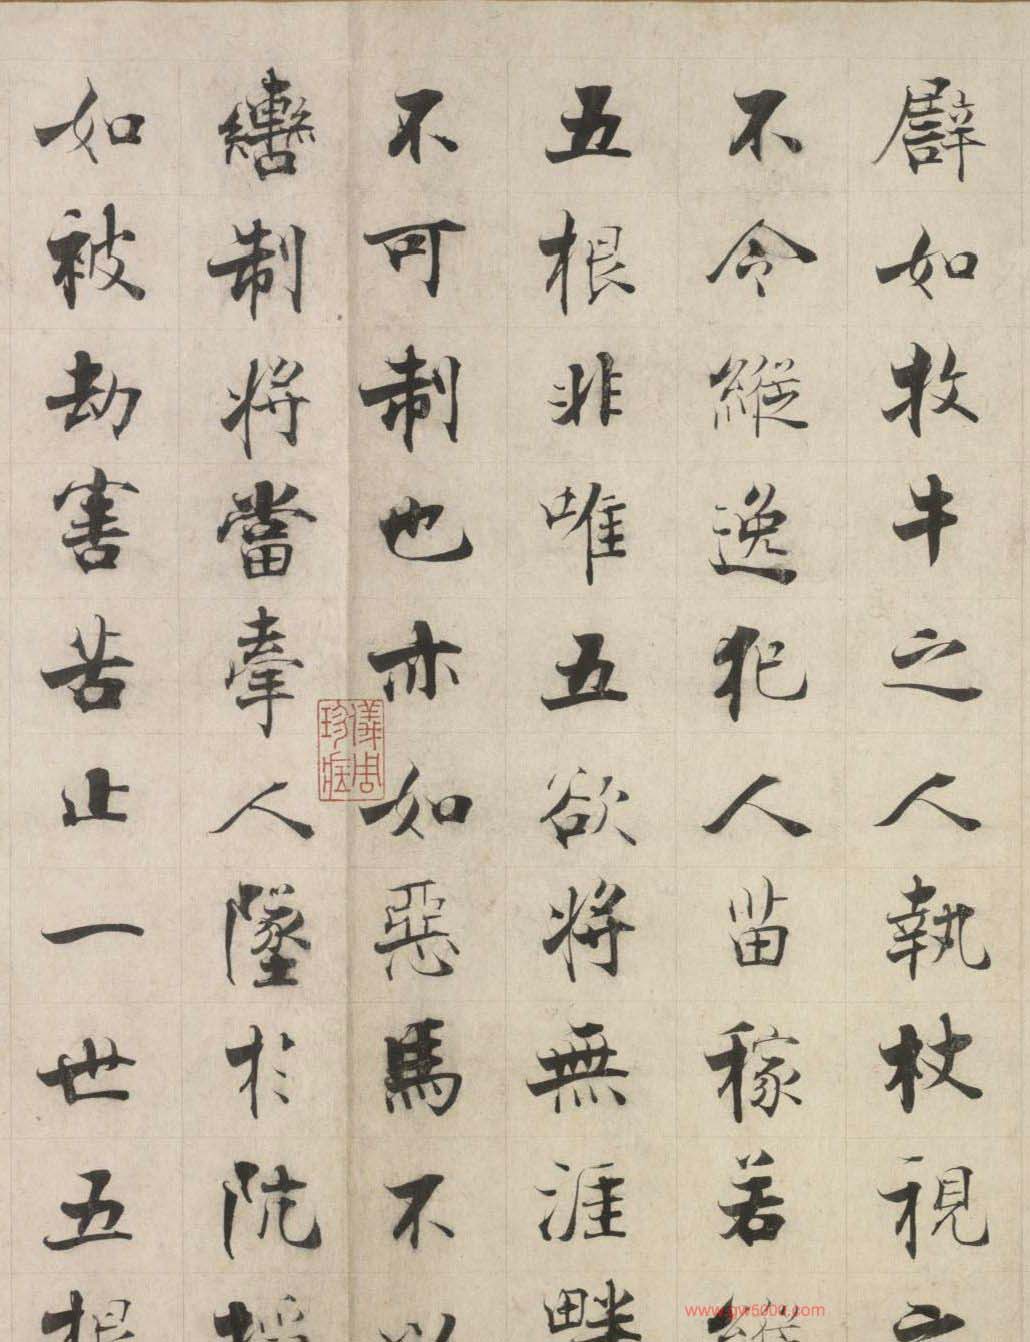 辟如牧牛之人執杖視之
不令縱逸犯人苗稼若縱
五根非唯五欲將無涯畔
不可制也亦如惡馬不以
轡制將當牽人墜於阬
如被劫害苦止一世五根
儀周珍藏
www.gw5000.com